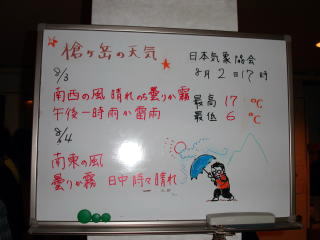 槍ヶ岳の天気
日本気象協会
8月2日17時
8/3
南西の風 晴れのち曇りか霧
午後一時雨か雷雨
最高 17 ℃
最低 6 ℃
8/4
南東の風
曇りか霧 日中時々晴れ